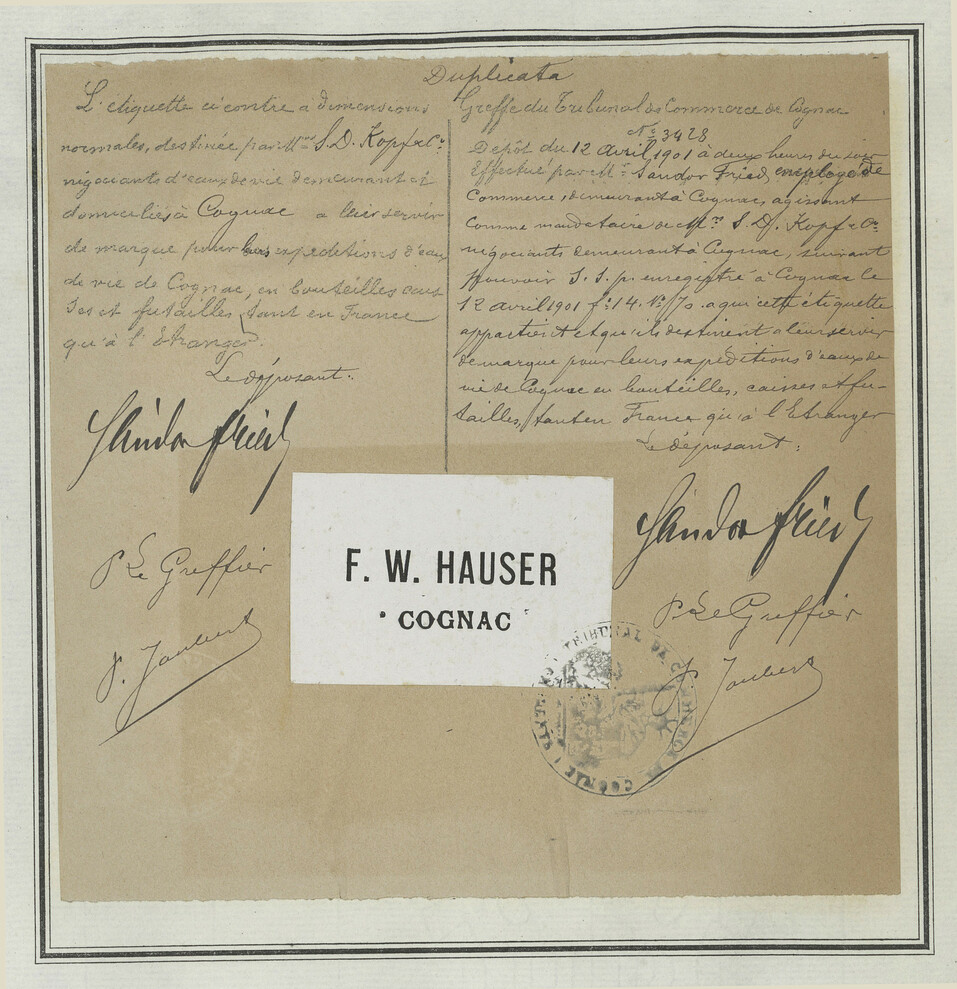 Duplicata
L'étiquette ci contre à dimensions
normales, destinée par Mrs S. D. Kopf & Cie
négociants d'eaux de vie demeurant et
domiciliés à Cognac a leur servir
de marque pour leurs expéditions d'eaux
de vie de Cognac, en bouteilles cais
ses et futailles, tant en France
qu'à l'étranger.
Le déposant:
Sándor Fried
P Le Greffier
P. Joubert
Greffe du Tribunal de Commerce de Cognac
No 3428
Dépôt du 12 avril 1901 à deux heures du soir
Effectué par Mr Sandor Fried, employé de
Commerce, demeurant à Cognac, agissant
comme mandataire de Mrs S. D. Kopf & Cie
négociants demeurant à Cognac, suivant
pouvoir S. S. p. enregistré à Cognac le
12 avril 1901 fo 14. No 70. a qui cette étiquette
appartient et qu'ils destinent a leur servir
de marque pour leurs expéditions d'eaux de
vie de Cognac en bouteilles, caisses et fu-
tailles, tant en France qu'à l'Etranger
Le déposant:
Sándor Fried
P Le Greffier
P. Joubert
F. W. HAUSER
COGNAC
TRIBUNAL DE COMMERCE DE COGNAC